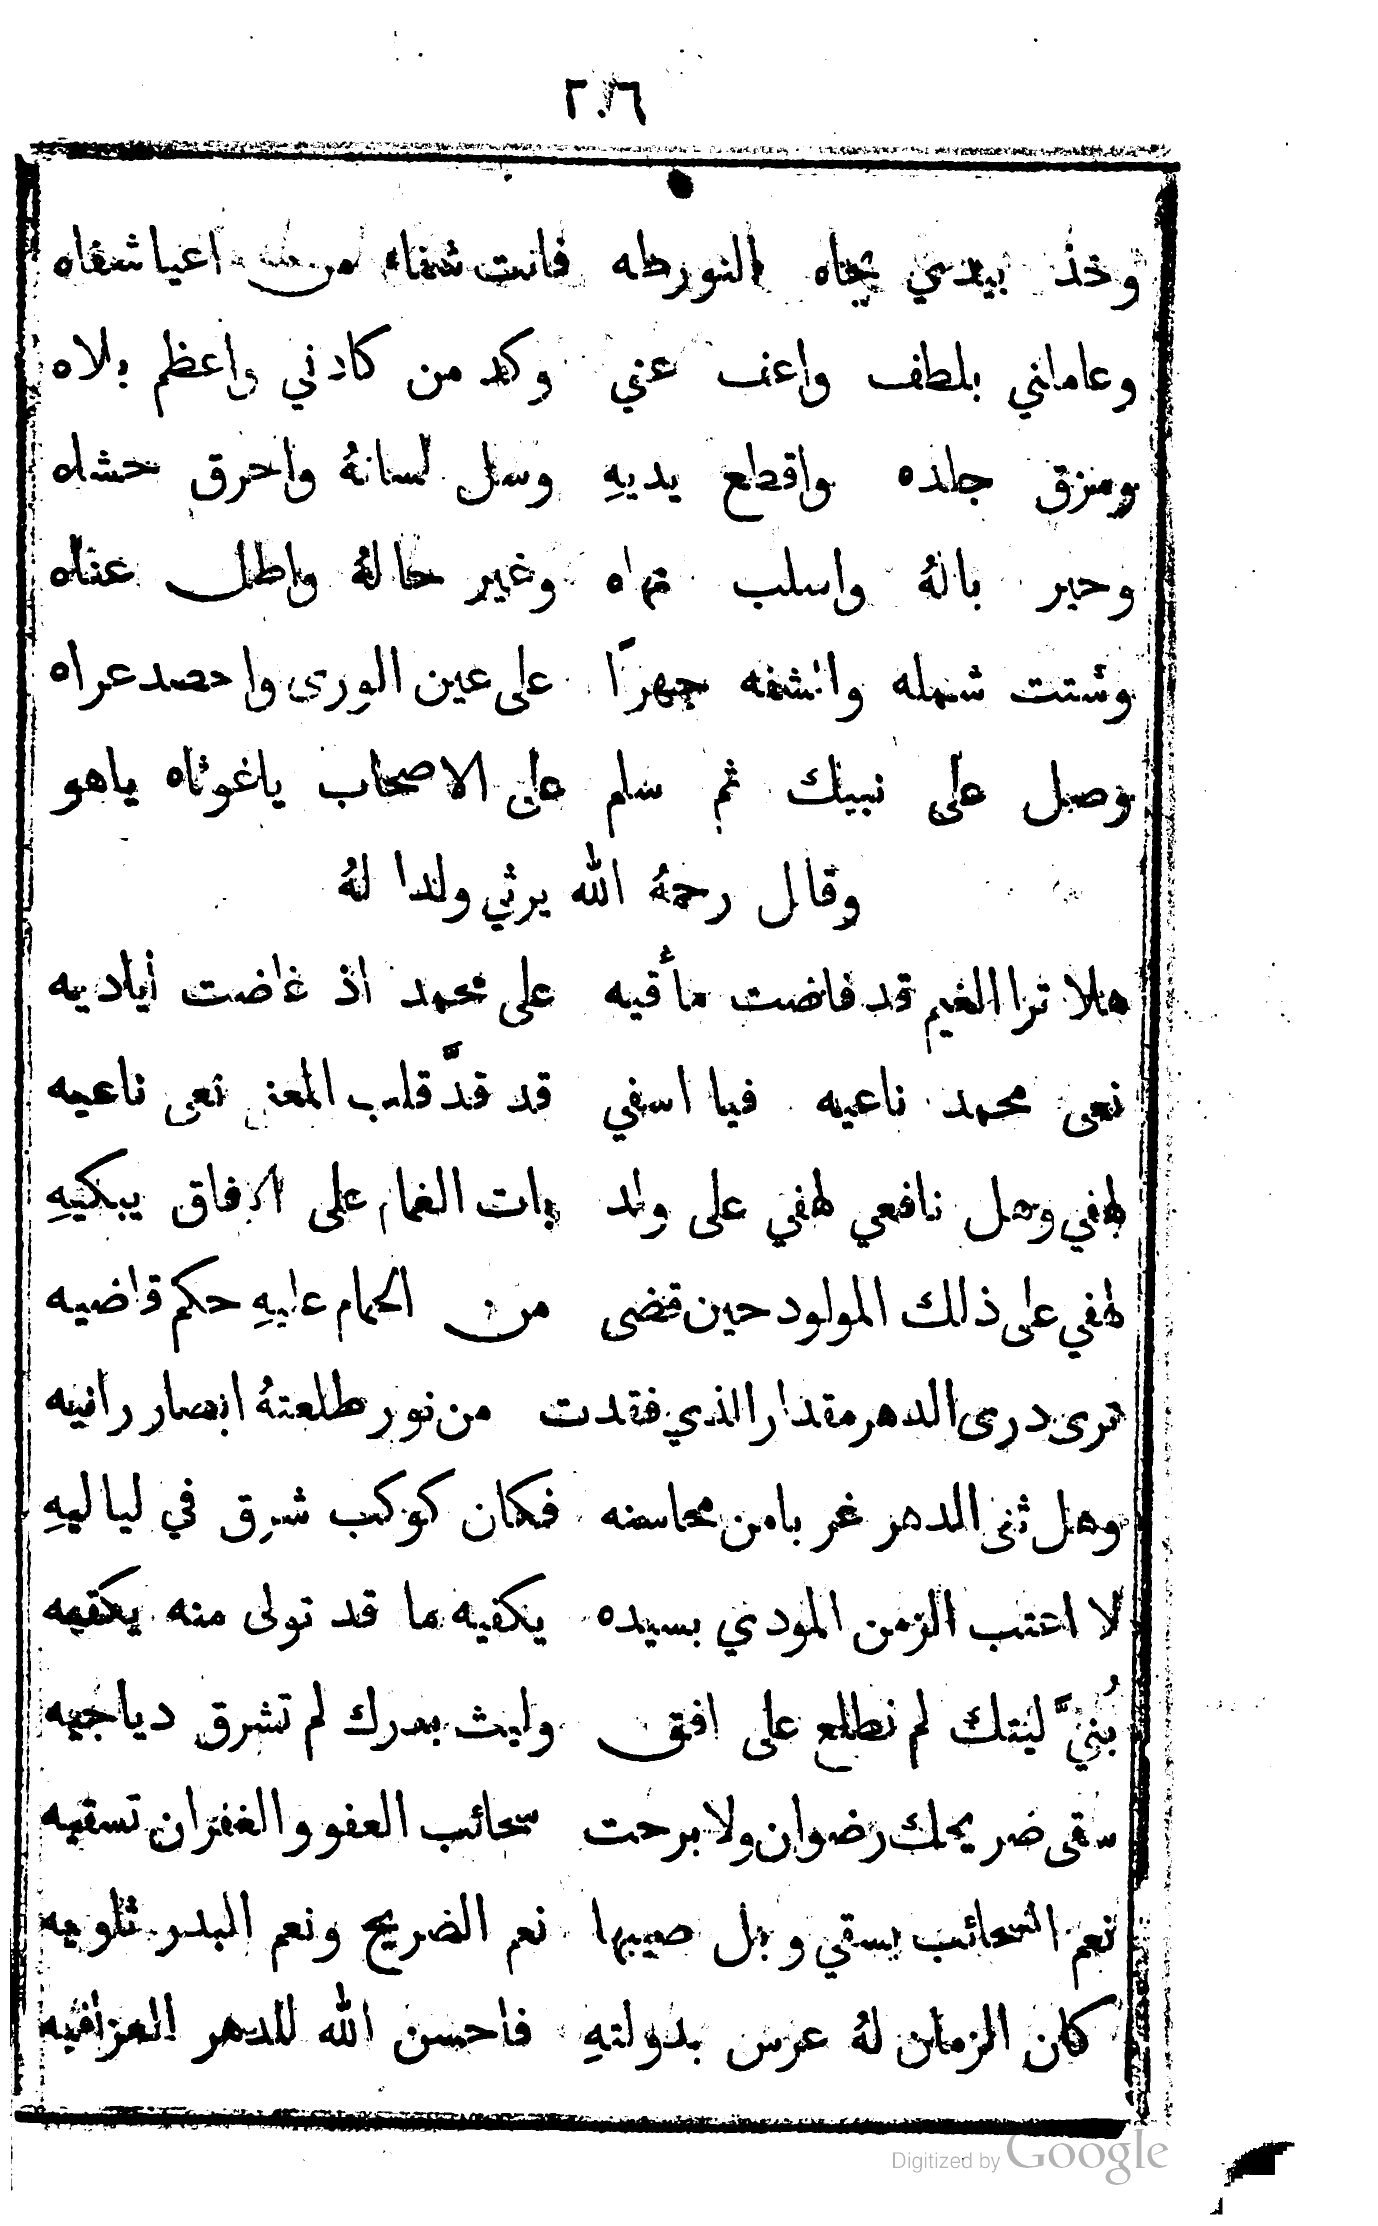 ٢٠٦
وخذ بيدي تجاه التورطه فانت شفاء من اعيا شفاه
وعاملني بلطف واعف عني وكد من كادني واعظم بلاه
ومزق جلده واقطع يديهِ وسل لسانهُ واحرق حشاه
وحير بالهُ واسلب نهاه وغير حالهُ واطل عناه
وشتت شمله واكشفه جهرًا على عين الورى واحصد عراه
وصل على نبيك ثم سلم على الاصحاب ياغوثاه ياهو
وقال رحمهُ الله يرثي ولدا لهُ
هلا ترا الغيم قد فاضت مأقيه على محمد اذ غاضت أياديه
نعى محمد ناعيه فيا اسفي قد قدَّ قلب المعنى نعى ناعيه
لهفي وهل نافعي لهفي على ولد بات الغمام على الافاق يبكيهِ
لهفي على ذلك المولود حين قضى من الحمام عليهِ حكم قاضيه
ترى درى الدهر مقدار الذي فقدت من نور طلعتهُ ابصار رانيه
وهل ثنى الدهر غربا من محاسنه فكان كوكب شرق في لياليهِ
لا اعتب الزمن المودي بسيده يكفيه ما قد تولى منه يكفيه
بُنيَّ ليتك لم تطلع على افق وليت بدرك لم تشرق دياجيه
سقى ضريحك رضوان ولا برحت سحائب العفو والغفران تسقيه
نعم السحائب يسقي وبل صيبها نعم الضريح ونعم البدر ثاويه
كان الزمان لهُ عرس بدولتهِ فاحسن الله للدهر العزا فيه
Digitized by Google